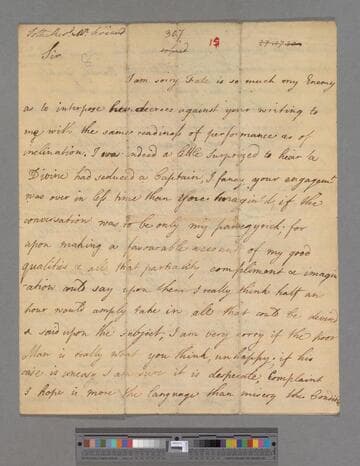 To the Rev.d Mr. Freind
307
15
Sir
I am sorry Fate is so much my Enemy
as to interpose her decrees against your writing to
me with the same readiness of performance as of
inclination, I was indeed a little surprized to hear a
Divine had seduced a Captain, I fancy your engagemt.
was over in less time than you imagin'd, if the
conversation was to be only my panegyrick: for
upon making a favourable account of my good
qualities & all that partiality compliment & imagin
ation could say upon them I really think half an
hour would amply take in all that could be devised
& said upon the subject, I am very sorry if the poor
Man is really what you think, unhappy; if his
case is uneasy I am sure it is desperate, Complaint
I hope is more the Language than misery the Condit